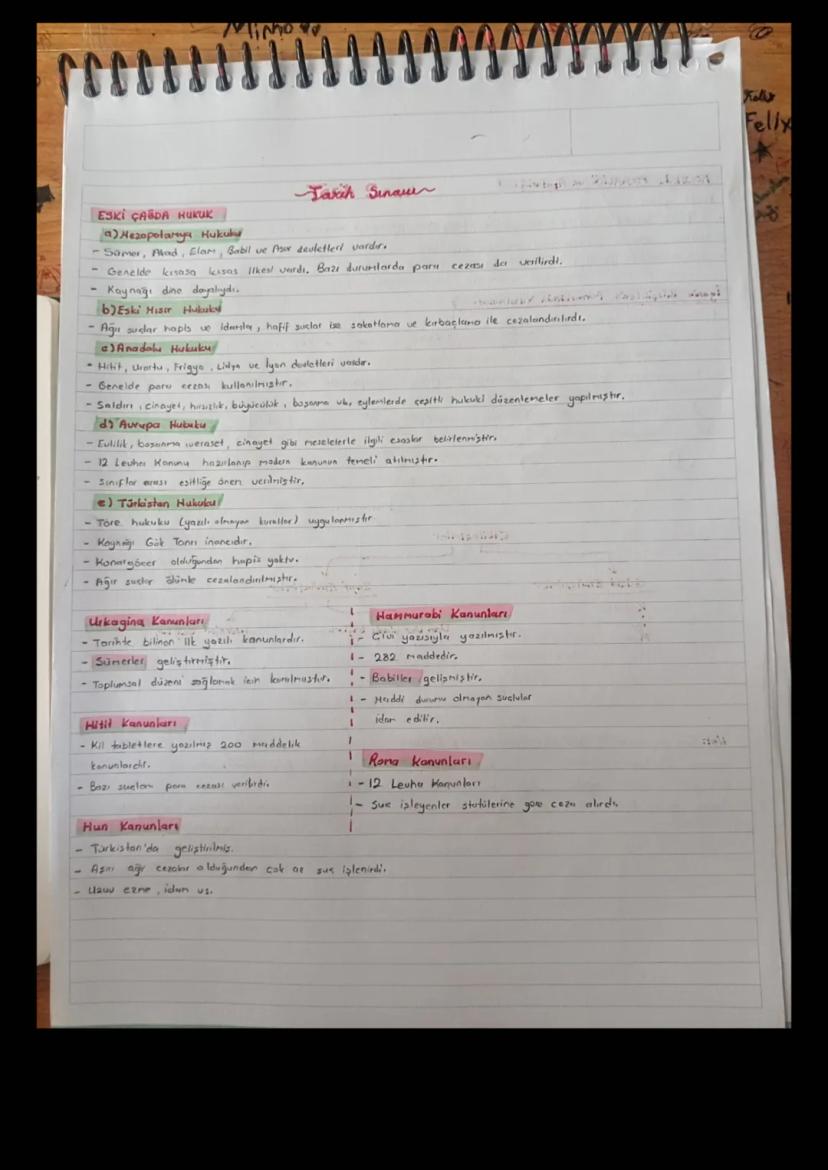 Minho
Felix
Felix
Tarih Sınavı
ESKİ ÇAĞDA HUKUK
a) Mezopotamya Hukuku
- Sümer, Akad, Elam, Babil ve Asur devletleri vardır.
- Genelde kısasa kısas ilkesi vardı. Bazı durumlarda para cezası da verilirdi.
- Kaynağı dine dayalıydı.
b) Eski Mısır Hukuku
- Ağır suçlar hapis ve idamla, hafif suçlar ise sakatlama ve kırbaçlama ile cezalandırılırdı.
c) Anadolu Hukuku
- Hitit, Urartu, Frigya, Lidya ve İyon devletleri vardır.
- Genelde para cezası kullanılmıştır.
- Saldırı, cinayet, hırsızlık, büyücülük, boşanma vb. eylemlerde çeşitli hukuki düzenlemeler yapılmıştır.
d) Avrupa Hukuku
- Evlilik, boşanma, veraset, cinayet gibi meselelerle ilgili esaslar belirlenmiştir.
- 12 Levha Kanunu hazırlanıp modern kanunun temeli atılmıştır.
- Sınıflar arası eşitliğe önem verilmiştir.
e) Türkistan Hukuku
- Töre hukuku (yazılı olmayan kurallar) uygulanmıştır
- Kaynağı Gök Tanrı inancıdır.
- Konargöçer olduğundan hapis yoktu.
- Ağır suçlar ölümle cezalandırılmıştır.
Urkagina Kanunları
- Tarihte bilinen ilk yazılı kanunlardır.
- Sümerler geliştirmiştir.
- Toplumsal düzeni sağlamak için kurulmuştur.
Hitit Kanunları
- Kil tabletlere yazılmış 200 maddelik
kanunlardır.
- Bazı suçlara para cezası verilirdi.
Hun Kanunları
- Türkistan'da geliştirilmiş.
- Aşırı ağır cezalar olduğundan çok az suç işlenirdi.
- Uzuv ezme, idam vs.
Hammurabi Kanunları
- Çivi yazısıyla yazılmıştır.
- 282 maddedir.
- Babiller gelişmiştir.
- Maddi durumu olmayan suçlular
idam edilir.
Roma Kanunları
- 12 Levha Kanunları
- Suç işleyenler statülerine göre ceza alırdı